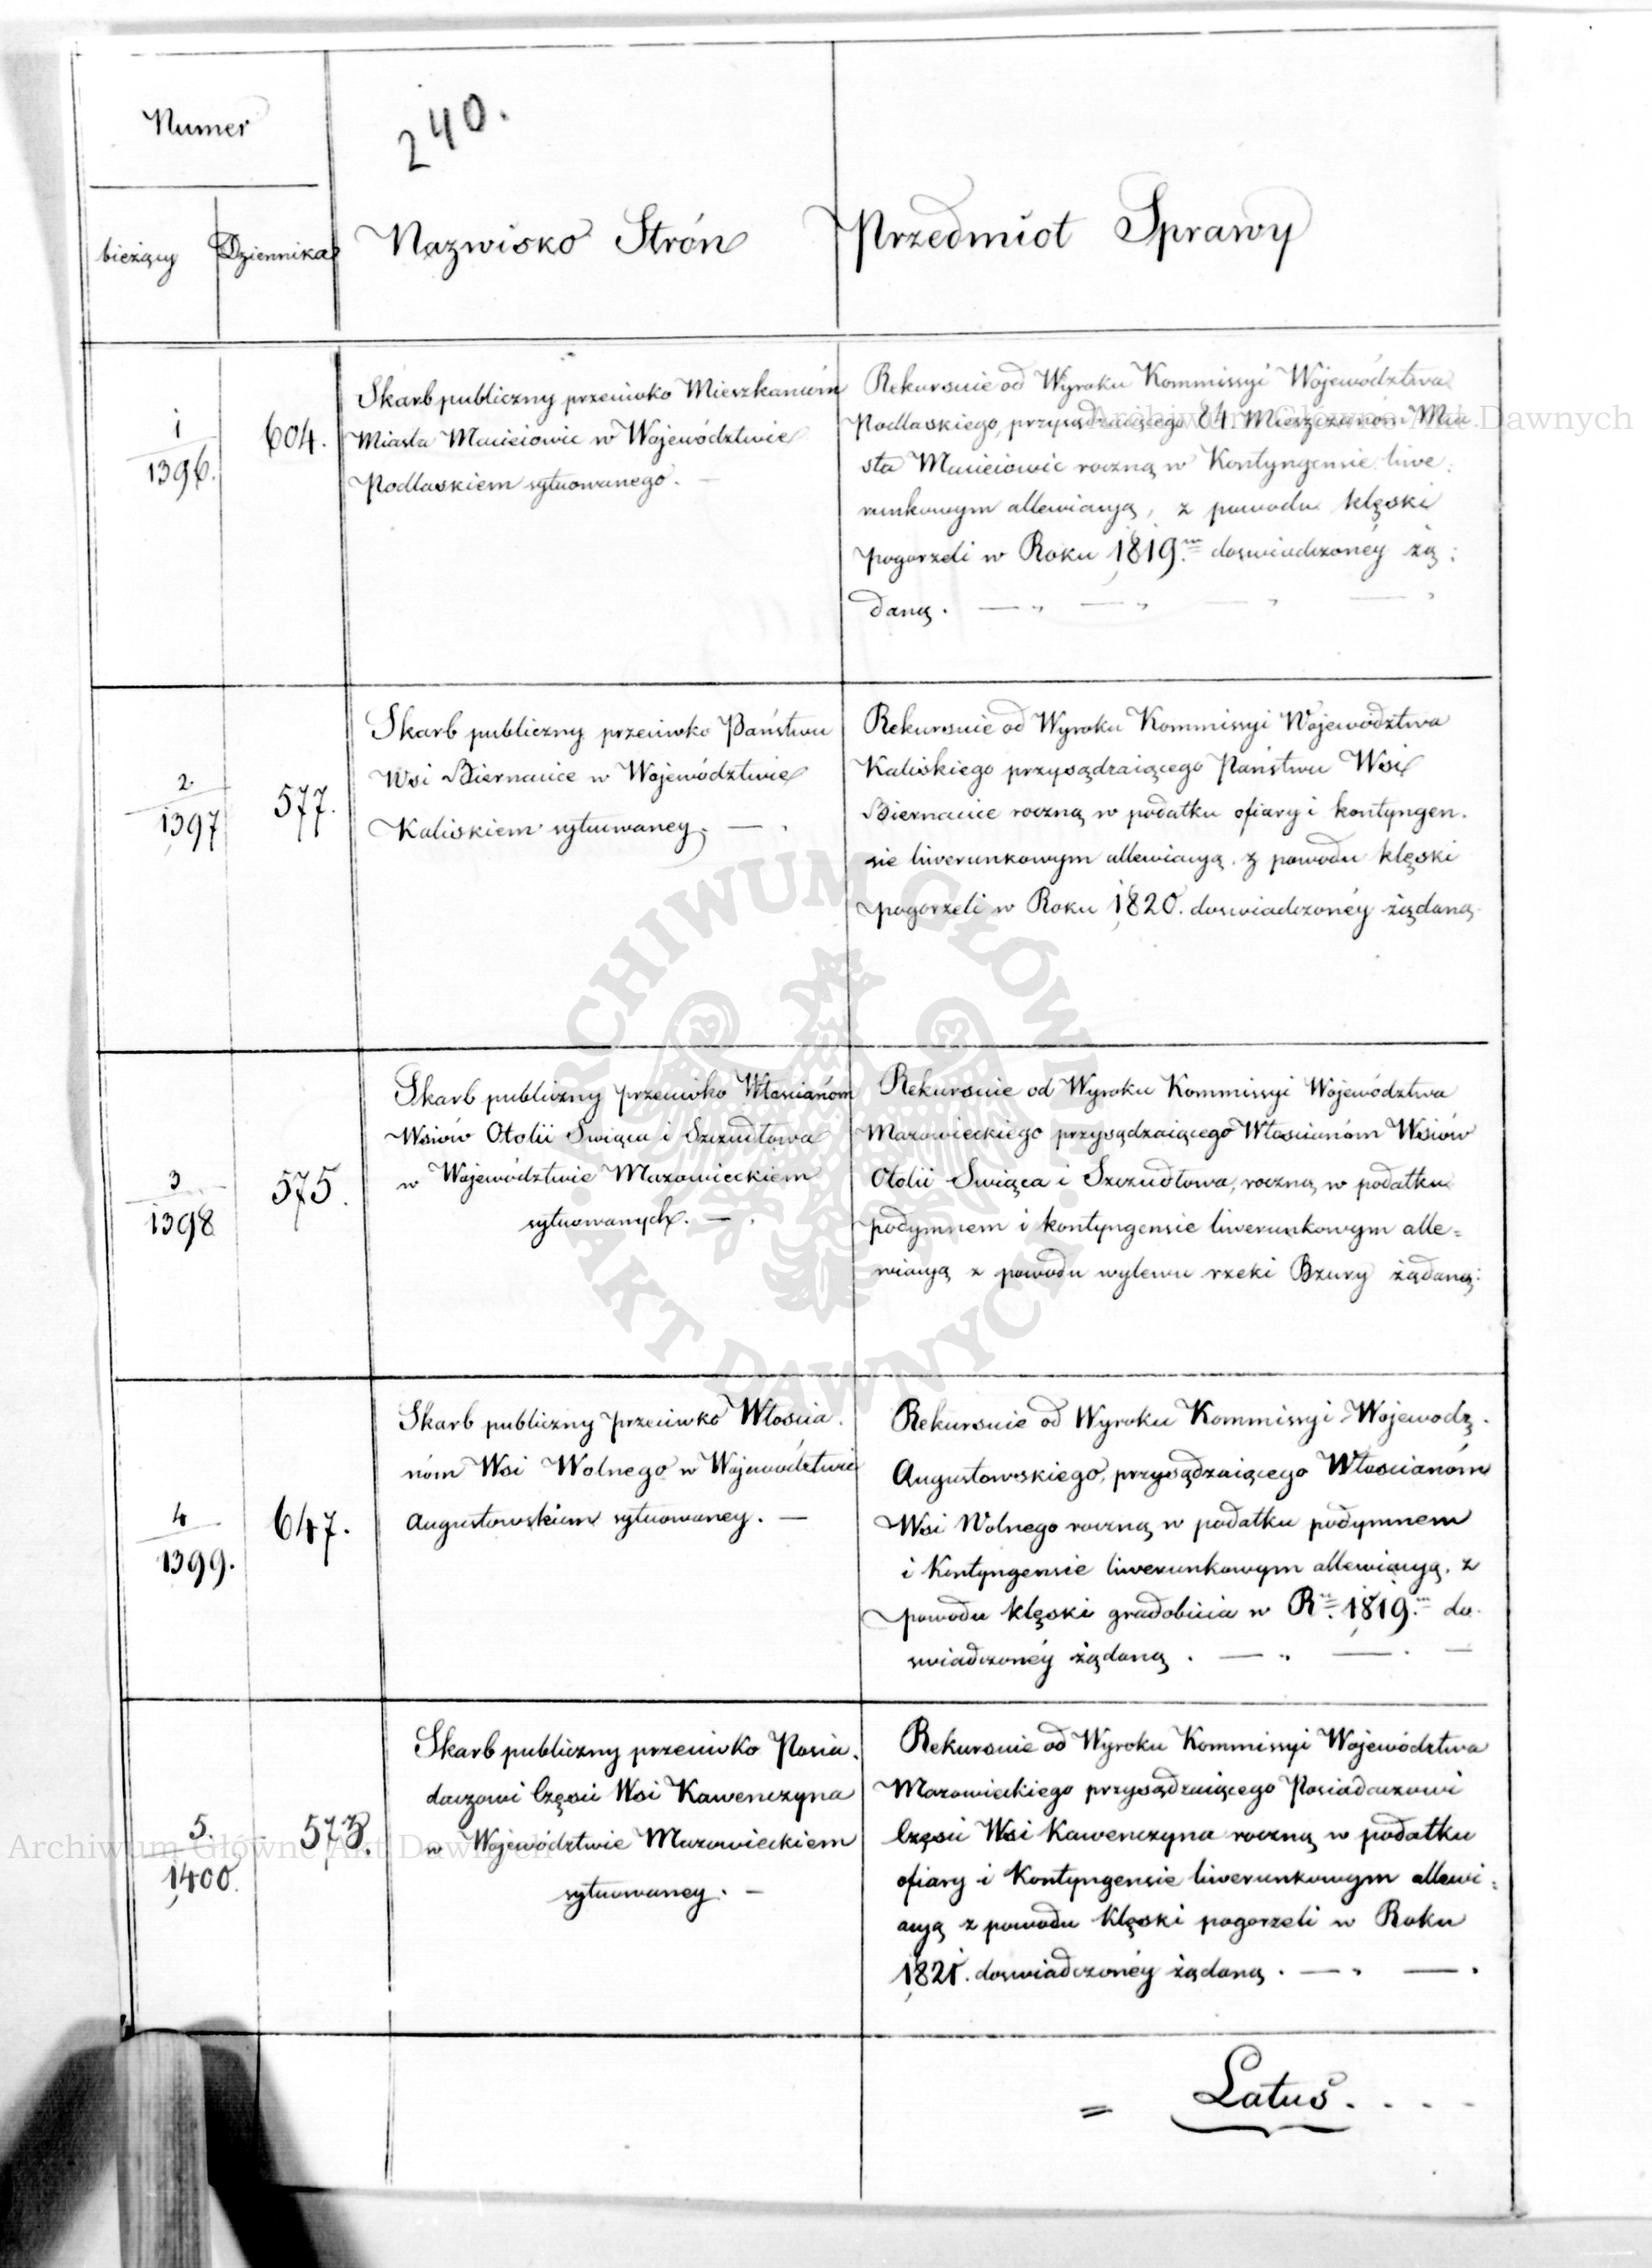 240.
Numer
bieżący Dziennika
Nazwisko Strón
Przedmiot Sprawy
1
1396.
604.
Skarb publiczny przeciwko Mieszkańcóm
Miasta Macieiowic w Województwie
Podlaskiem sytuowanego. —
Rekursuie od Wyroku Kommissyi Województwa
Podlaskiego, przysądzaiącego 84 Mieszczanóm Mia
sta Macieiowic roczną w Kontyngensie liwe:
runkowym allewiacyą, z powodu klęski
pogorzeli w Roku 1819m. doświadczonéy żą:
daną. — " — " — " — "
2.
1397
577.
Skarb publiczny przeciwko Państwu
Wsi Biernacice w Województwie
Kaliskiem sytuowaney. — .
Rekursuie od Wyroku Kommissyi Województwa
Kaliskiego przysądzaiącego Państwu Wsi
Biernacice roczną w podatku ofiary i kontyngen.
sie liwerunkowym allewiacyą. z powodu klęski
pogorzeli w Roku 1820. doswiadczonéy żądaną.
3
1398
575.
Skarb publiczny przeciwko Włościanóm
Wsiów Otolii Swiąca i Szczudłowa
w Województwie Mazowieckiem
sytuowanych. — .
Rekursuie od Wyroku Kommissyi Województwa
Mazowieckiego przysądzaiącego Włoscianóm Wsiów
Otolii Swiąca i Szczudłowa, roczną w podatku
podymnem i kontyngensie liwerunkowym alle=
wiacyą z powodu wylewu rzeki Bzury żądaną:
4
1399.
647.
Skarb publiczny przeciwko Włoscia.
nóm Wsi Wolnego w Województwie
Augustowskiem sytuowaney. —
Rekursuie od Wyroku Kommissyi Wojewodz.
Augustowskiego, przysądzaiącego Włoscianóm
Wsi Wolnego roczną w podatku podymnem
i Kontyngensie liwerunkowym allewiacyą. z
powodu klęski gradobicia w Ru. 1819.m do.
swiadczonéy żądaną . — " — . —
5.
1400.
573.
Skarb publiczny przeciwko Posia.
daczowi Częsci Wsi Kawenczyna
w Województwie Mazowieckiem
sytuowaney. —
Rekursuie od Wyroku Kommissyi Województwa
Mazowieckiego przysądzaiącego Posiadaczowi
Częsci Wsi Kawenczyna roczną w podatku
ofiary i Kontyngensie liwerunkowym allewi:
acyą z powodu klęski pogorzeli w Roku
1821. doswiadczonéy żądaną . — . — .
= Latus . . . .
Archiwum Główne Akt Dawnych
ARCHIWUM GŁÓWNE · AKT DAWNYCH ·
Archiwum Główne Akt Dawnych